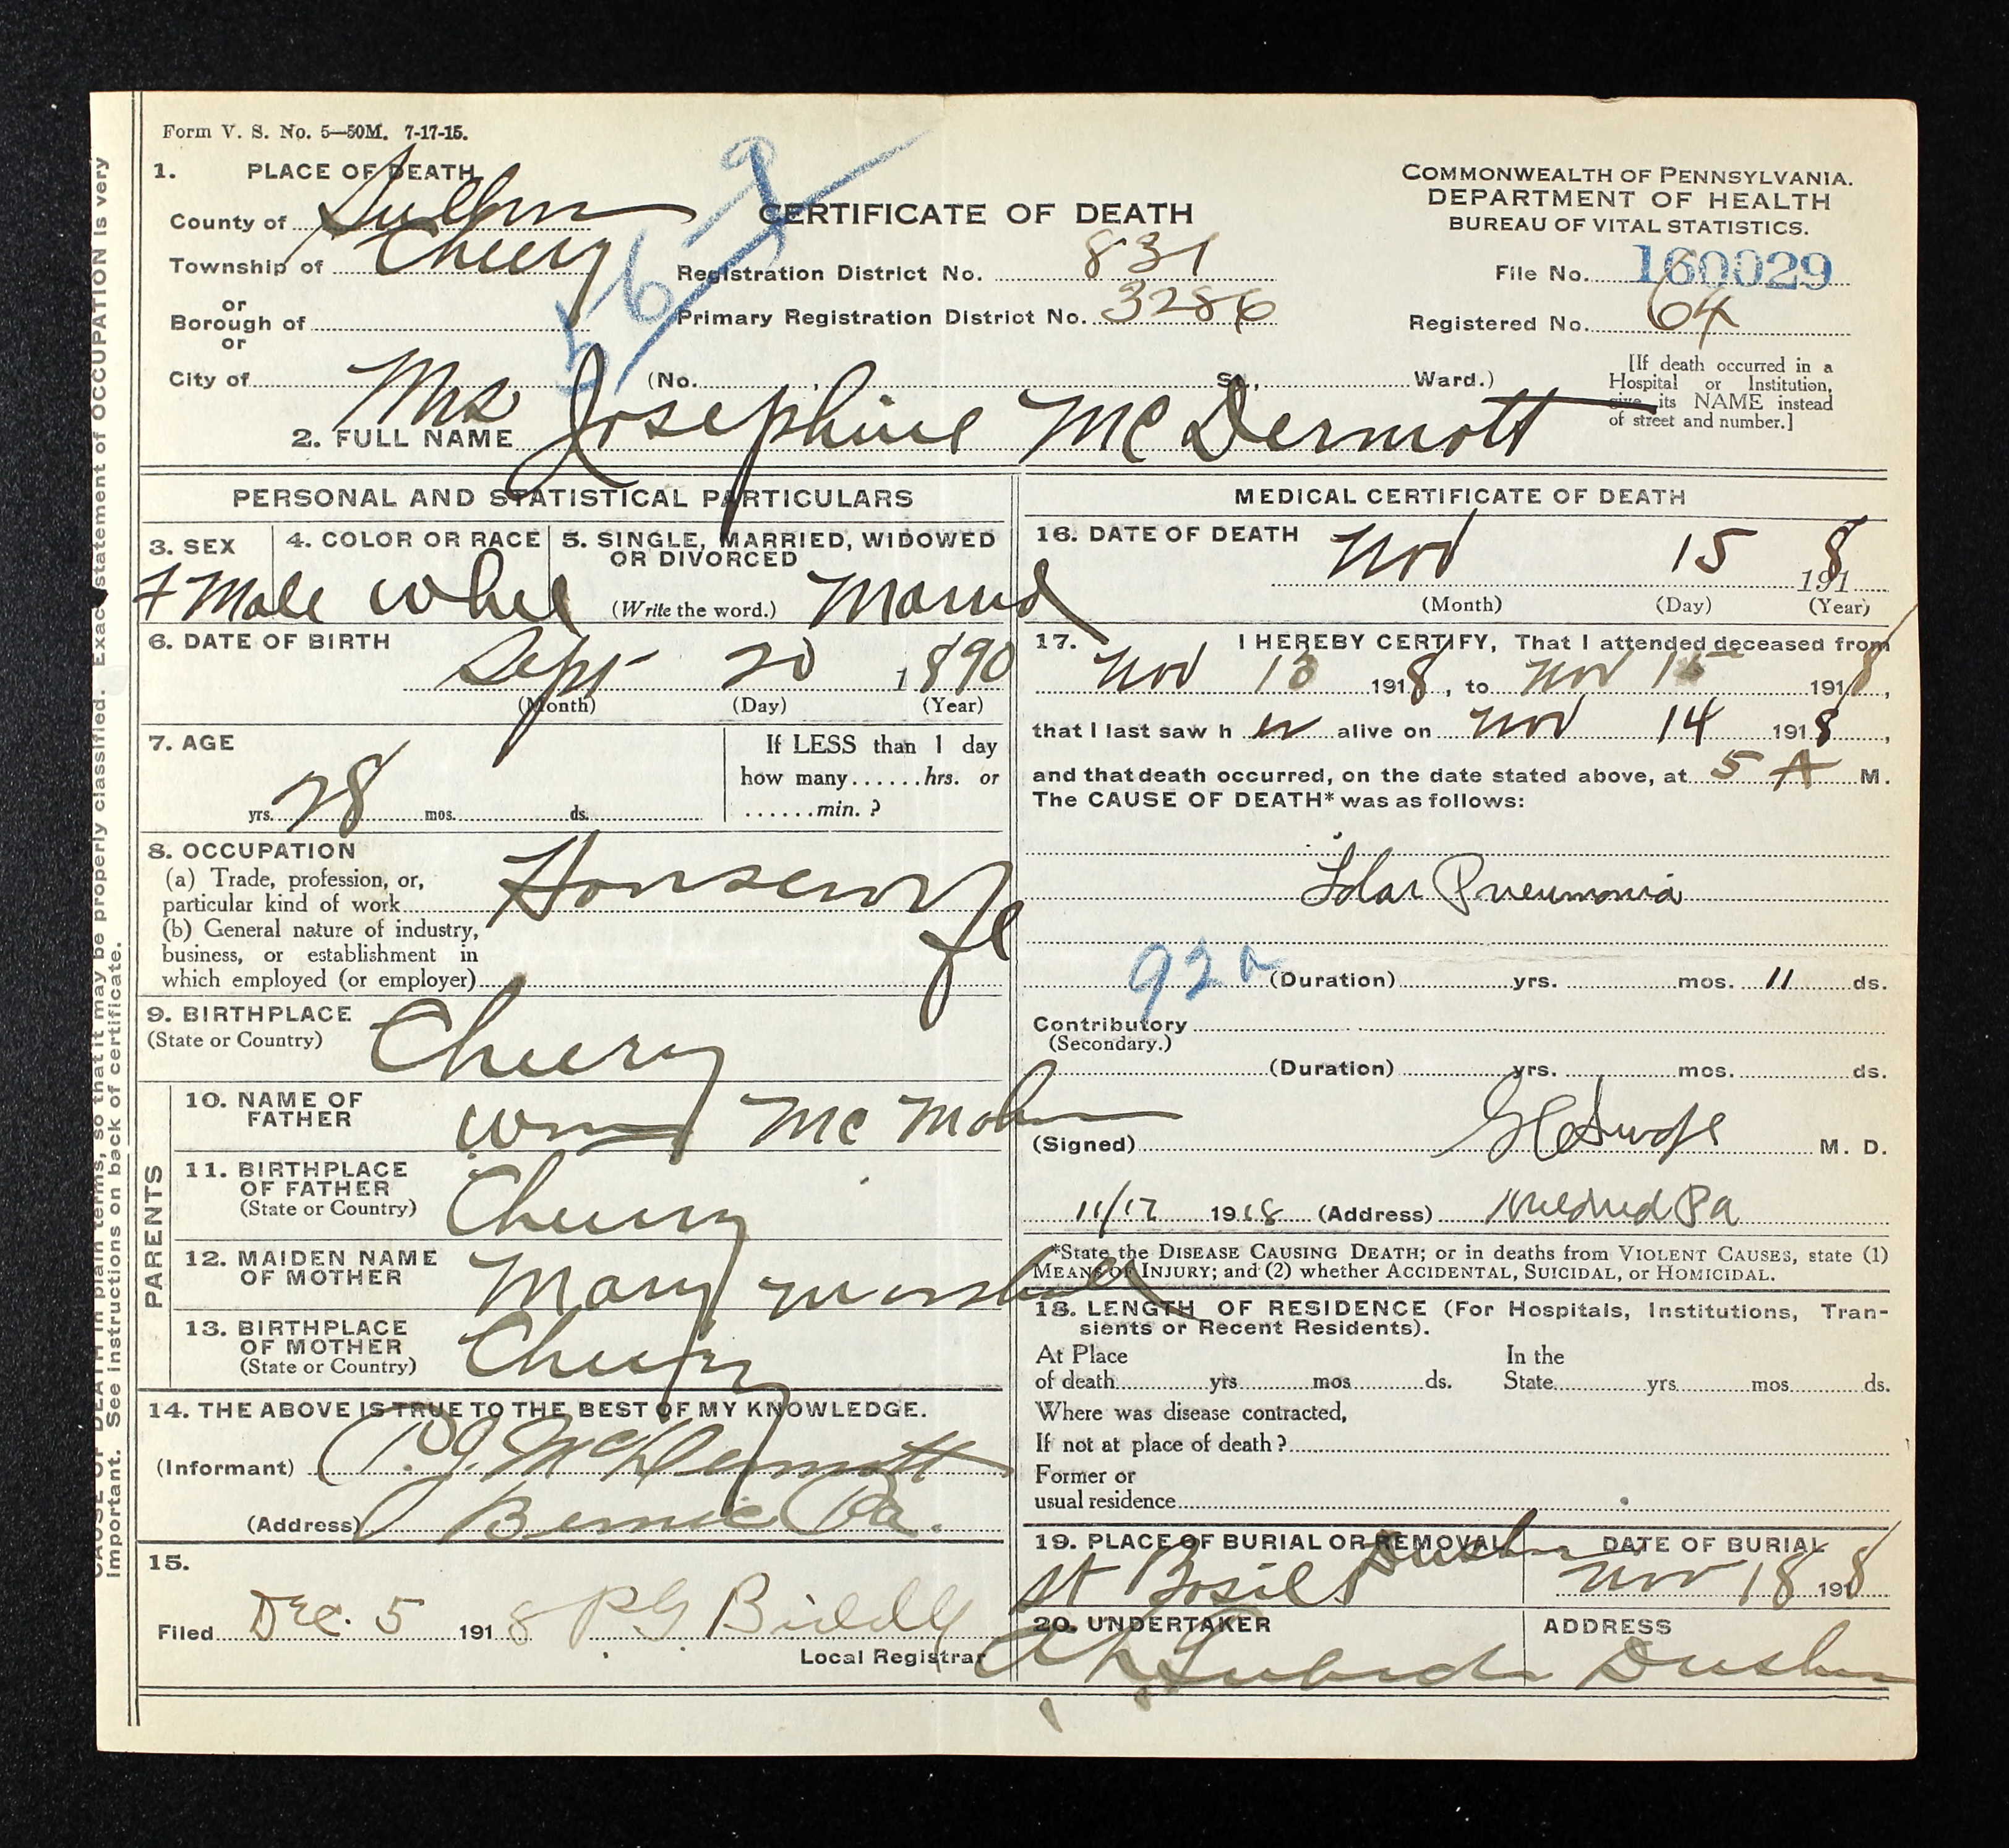 Form V. S. No. 5—50M. 7-17-15.
1. PLACE OF DEATH
County of
Township of Cherry
or
Borough of
or
City of
CERTIFICATE OF DEATH
Registration District No. 831
Primary Registration District No. 3286
(No. , St., Ward.)
COMMONWEALTH OF PENNSYLVANIA.
DEPARTMENT OF HEALTH
BUREAU OF VITAL STATISTICS.
File No. 160029
Registered No. 64
[If death occurred in a
Hospital or Institution,
give its NAME instead
of street and number.]
2. FULL NAME Mrs Josephine McDermott
PERSONAL AND STATISTICAL PARTICULARS
3. SEX
4. COLOR OR RACE
5. SINGLE, MARRIED, WIDOWED
OR DIVORCED
(Write the word.)
6. DATE OF BIRTH
Sept 20 1890
(Month) (Day) (Year)
7. AGE
yrs. 28 mos. ds.
If LESS than 1 day
how many......hrs. or
......min. ?
8. OCCUPATION
(a) Trade, profession, or,
particular kind of work Housewife
(b) General nature of industry,
business, or establishment in
which employed (or employer)
9. BIRTHPLACE
(State or Country)
Cherry
PARENTS
10. NAME OF
FATHER
Wm Mc
11. BIRTHPLACE
OF FATHER
(State or Country)
Cherry
12. MAIDEN NAME
OF MOTHER
Mary
13. BIRTHPLACE
OF MOTHER
(State or Country)
Cherry
14. THE ABOVE IS TRUE TO THE BEST OF MY KNOWLEDGE.
(Informant) P.J. McDermott
(Address) Bernice Pa.
15.
Filed Dec. 5 1918 P G Biddle
Local Registrar
MEDICAL CERTIFICATE OF DEATH
16. DATE OF DEATH
Nov 15 1918
(Month) (Day) (Year)
17. I HEREBY CERTIFY, That I attended deceased from
Nov 13 1918, to Nov 15 1918,
that I last saw h er alive on Nov 14 1918,
and that death occurred, on the date stated above, at 5 A M.
The CAUSE OF DEATH* was as follows:
Lobar Pneumonia
92a
(Duration) yrs. mos. 11 ds.
Contributory
(Secondary.)
(Duration) yrs. mos. ds.
(Signed) M. D.
11/17 1918 (Address) Mildred Pa
*State the DISEASE CAUSING DEATH; or in deaths from VIOLENT CAUSES, state (1)
MEANS OF INJURY; and (2) whether ACCIDENTAL, SUICIDAL, or HOMICIDAL.
18. LENGTH OF RESIDENCE (For Hospitals, Institutions, Tran-
sients or Recent Residents).
At Place
of death yrs mos ds.
In the
State yrs mos ds.
Where was disease contracted,
If not at place of death ?
Former or
usual residence
19. PLACE OF BURIAL OR REMOVAL
St Basils Dushore
DATE OF BURIAL
Nov 18 1918
20. UNDERTAKER
ADDRESS
Dushore
CAUSE OF DEATH in plain terms, so that it may be properly classified. Exact statement of OCCUPATION is very
important. See instructions on back of certificate.